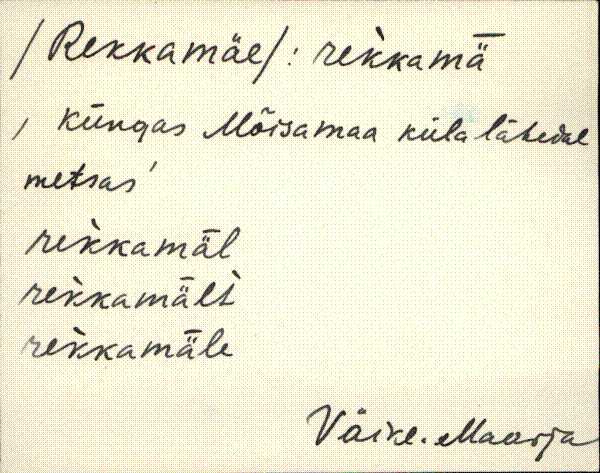 /Rekkamäe/: rek̀kamǟ
, küngas Mõisamaa küla lähedal
metsas'
rek̀kamǟl
rek̀kamǟlt
rek̀kamǟle
Väike-Maarja